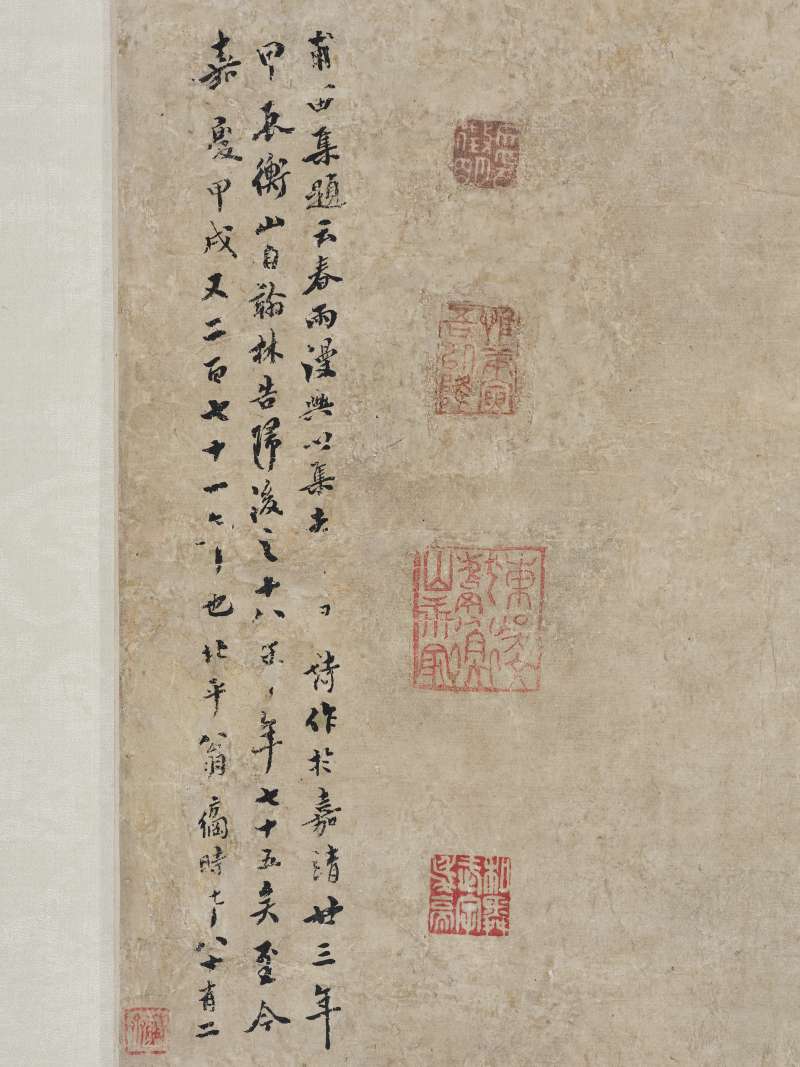 甫田集題云春雨漫興以集考詩作於嘉靖廿三年
甲辰衡山自翰林告歸後之十八年年七十五矣至今
嘉慶甲戌又二百七十一年也北平翁方綱時年八十有二
惟庚寅吾以降